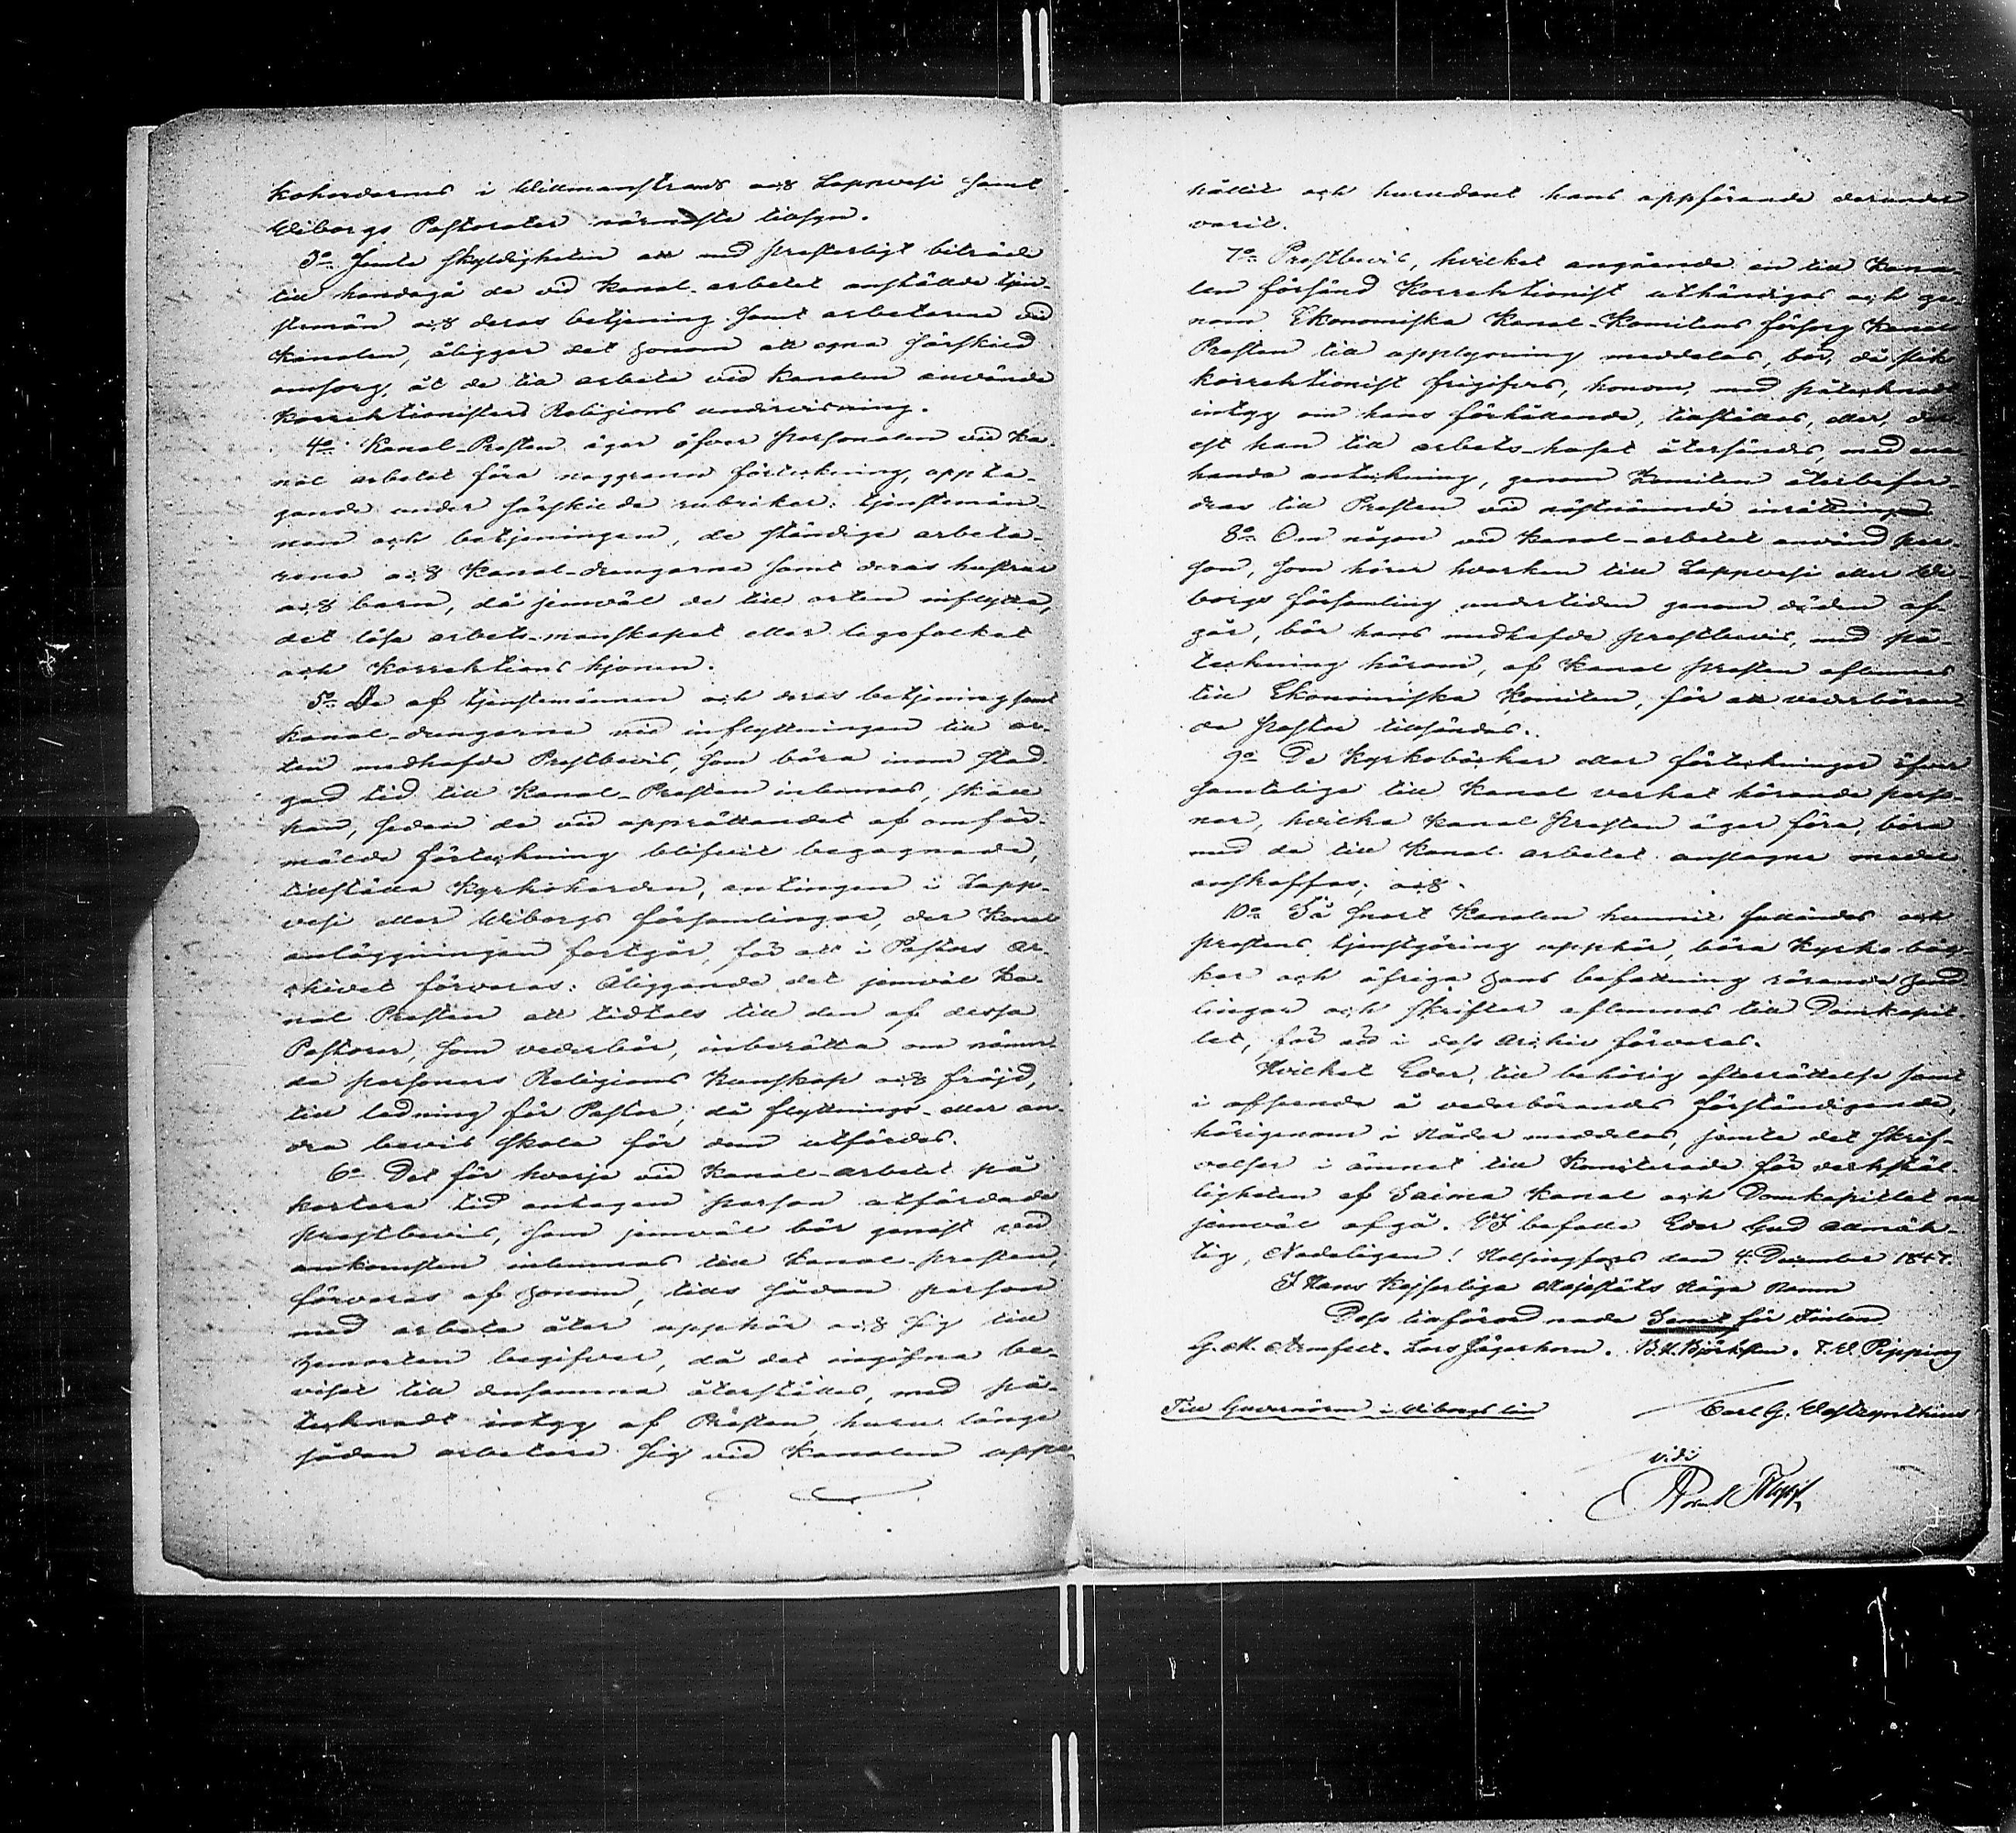 koherdarnes i Willmanstrands och Lappvesi samt
Wiborgs Pastorater närmaste tillsyn.
3o Jemte skyldigheten att med presterligt biträde
till handagå de vid Kanal-arbetet anstälde tjen-
stemän och deras betjening samt arbetarene vid
Kanalen, åligger det honom att egna särskild
omsorg, åt de till arbete vid kanalen använde
Korrektionisters Religions undervisning.
4o Kanal-Presten äger öfver personalen vid ka-
nal arbetet föra noggrann förteckning, uppta-
gande under särskilde rubriker: tjenstemän-
nen och betjeningen, de ständige arbeta-
rena och Kanal-drengarne samt deras hustrur
och barn, då jemväl de till orten inflytta,
det lösa arbets-manskapet eller legofolket
och Korrektions hjonen.
5o De af tjenstemännen och deras betjening samt
kanal-drengarne vid inflyttningen till or-
ten medhafde Prestbevis, som böra inom stad-
gad tid till Kanal-Presten inlemnas, skall
han, sedan de vid upprättandet af omför-
mälde förteckning blifvit begagnade,
tillställa Kyrkoherden, antingen i Lapp-
vesi eller Wiborgs församlingar, der Kanal
anläggningen fortgår, för att i Pastors Ar-
chivet förvaras: Åliggande det jemväl Ka-
nal Presten att tidtals till den af dessa
Pastorer, som vederbör, inberätta om nämn-
de personers Religions Kunskap och fräjd,
till ledning för Pastor, då flyttnings- eller an-
dra bevis skola för dem utfärdas.
6o Det för hvarje vid Kanal-arbetet på
kortare tid antagen person utfärdade
prestbevis, som jemväl bör genast vid
ankomsten inlemnas till Kanal-presten,
förvaras af honom, tills sådan person
med arbete åter upphör och sig till
hemorten begifver, då det ingifna be-
viset till densamma återställes, med på-
tecknadt intyg af Presten, huru länge
sådan arbetare sig vid Kanalen uppe-
hållit och hurudant hans uppförande derunder
varit.
7o Prestbevis, hvilket angående en till Kana-
len försänd Korrektionist uthändigas och ge-
nom Ekonomiska Kanal-Komitens försorg Kanal
Presten till upplysning meddelas, bör, då slik
korrektionist frigifves, honom, med påtecknadt
intyg om hans förhållande, tillställas, eller, der-
est han till arbets-huset återsändes, med ena-
handa anteckning, genom Komiten återbefor-
dras till Presten vid sistnämnde inrättning
8o Om någon vid Kanal-arbetet använd per-
son, som hörer hvarken till Lappvesi eller Wi-
borgs församling undertiden genom döden af-
går, bör hans medhafde prestbevis, med på-
teckning härom, af Kanal presten aflemnas
till Ekonomiska Komiten, för att vederböran-
de pastor tillsändas.
9o De Kyrkoböcker eller förteckningar öfver
samtelige till Kanal verket hörande perso-
ner, hvilka Kanal Presten äger föra, böra
med de till Kanal arbetet anslagne medel
anskaffas; och
10o Så snart Kanalen hunnit fulländas och
prestens tjenstgöring upphör, böra Kyrko böc-
ker och öfriga hans befattning rörande hand-
lingar och skrifter aflemnas till Domkapit-
let, för att i dess Archiv förvaras.
Hvilket Eder, till behörig efterrättelse samt
i afseende å vederbörandes förständigande,
härigenom i Nåder meddelas, jemte det skrif-
velser i ämnet till Komiterade för verkstäl-
ligheten af Saima Kanal och Domkapitlet nu
jemväl afgå. Vi befalle Eder Gud Allmäk-
tig, Nådeligen! Helsingfors den 4 December 1847.
I Hans Kejserliga Majestäts Höga Namn
Dess tillförordnade Senat för Finland
G. M. Armfelt. Lars Jägerhorn. B. U. Björkstén. F. W. Pipping
Till Guvernören i Wiborgs län
Carl G.
vidi